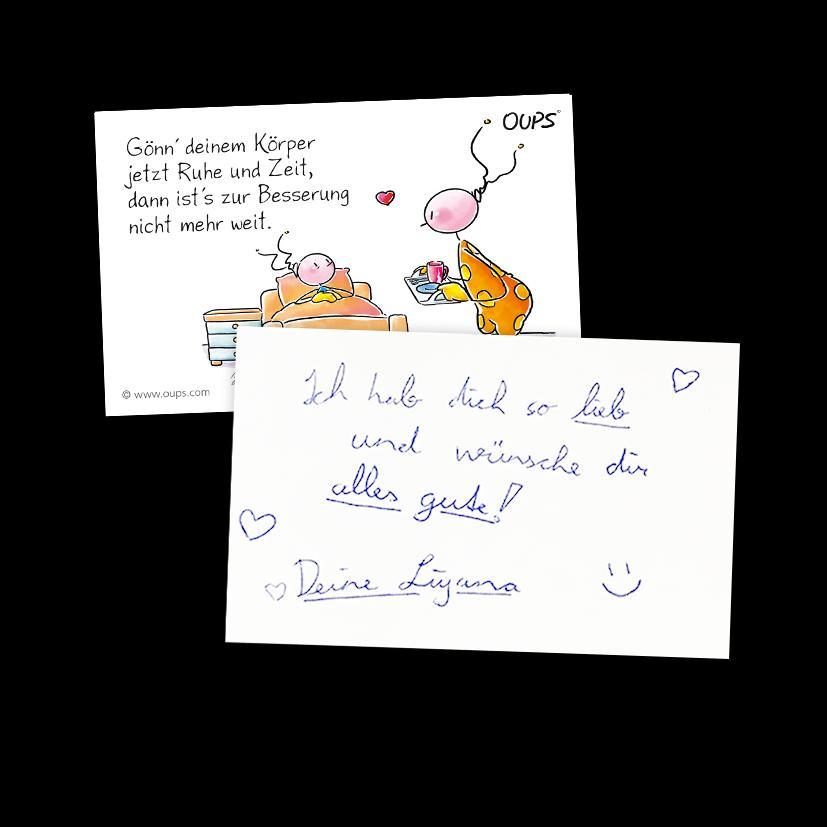 OUPS
Gönn' deinem Körper
jetzt Ruhe und Zeit,
dann ist's zur Besserung
nicht mehr weit.
© www.oups.com
Ich hab dich so lieb
und wünsche dir
alles gute!
Deine Liyana